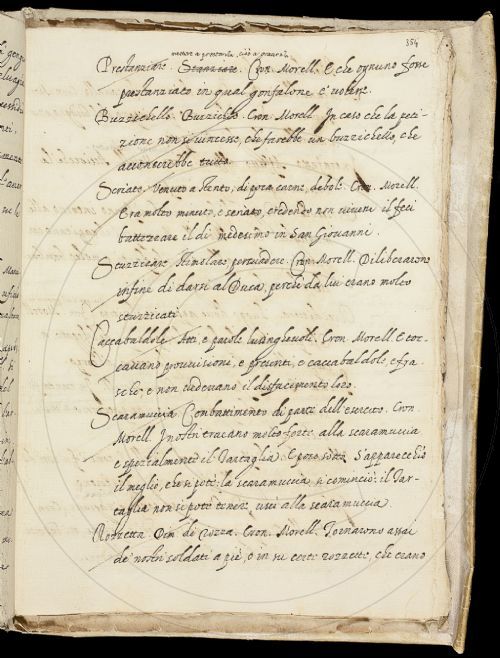 354
mettere a prestanza, cioè a gravezza
Prestanziare. Stanziare. Cron. Morell. E che ognuno fosse
prestanziato in qual gonfalone e' volesse.
Buzzichello. Buzzichio. Cron. Morell. In caso che la peti-
zione non si vincesse, che farebbe un buzzichello, che
acconcerebbe tutto.
Seriato. Venuto a stento, di poca carne, debole. Cron. Morell.
Era molto minuto, e seriato, credendo non vivere il feci
battezzare il dì medesimo in San Giovanni.
Scuzzicare. Stimolare, persuadere. Cron. Morell. Diliberarono
infine di darsi al Duca, perchè da lui erano molto
scuzzicati.
Caccabaldole. Atti, e parole lusinghevoli. Cron. Morell. E toc-
cavano provvisioni, e presenti, e caccabaldole, e fra-
sche, e non vedevano il disfacimento loro.
Scaramuccia. Combattimento di parte dell'esercito. Cron.
Morell. I nostri erano molto forte alla scaramuccia
e spezialmente il Tartaglia. E poco sotto. S'apparecchiò
il meglio, che si potè: la scaramuccia si cominciò: il Tar-
taglia non si potè tenere uscì alla scaramuccia.
Rozzetta. Dim. di rozza. Cron. Morell. Tornarono assai
de' nostri soldati a piè, e in su certe rozzette, che erano